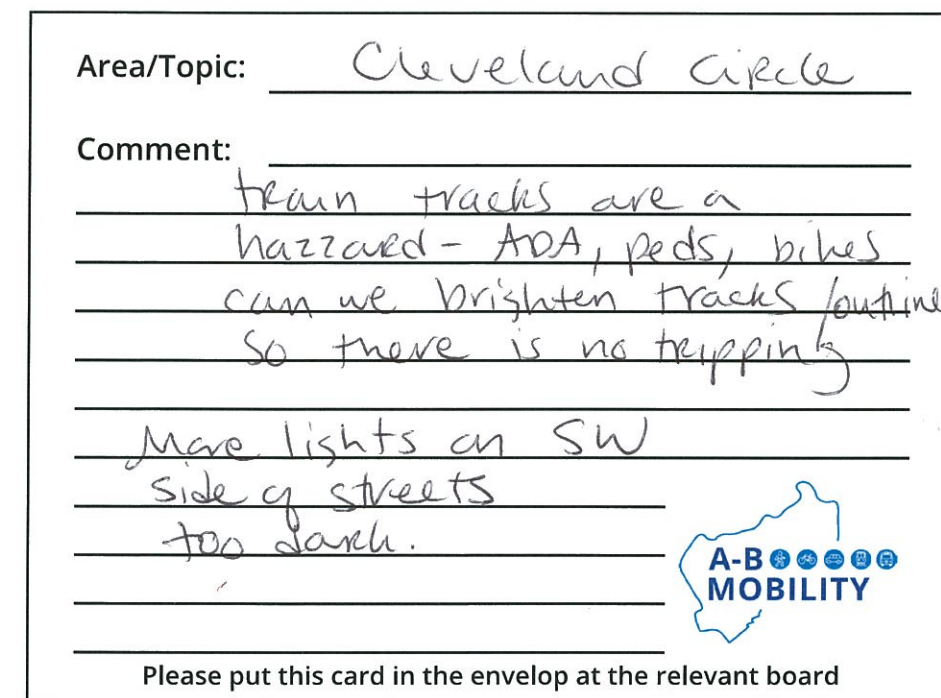 Area/Topic: Cleveland Circle
Comment:
train tracks are a
hazzard - ADA, peds, bikes
can we brighten tracks /outline
so there is no tripping
More lights on SW
side of streets
too dark.
A-B
MOBILITY
Please put this card in the envelop at the relevant board